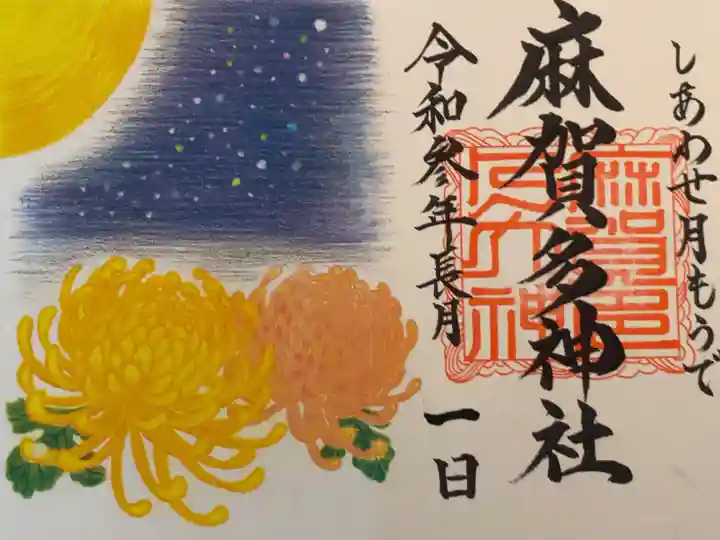 しあわせ月もうで
麻賀多神社
令和参年長月 一日